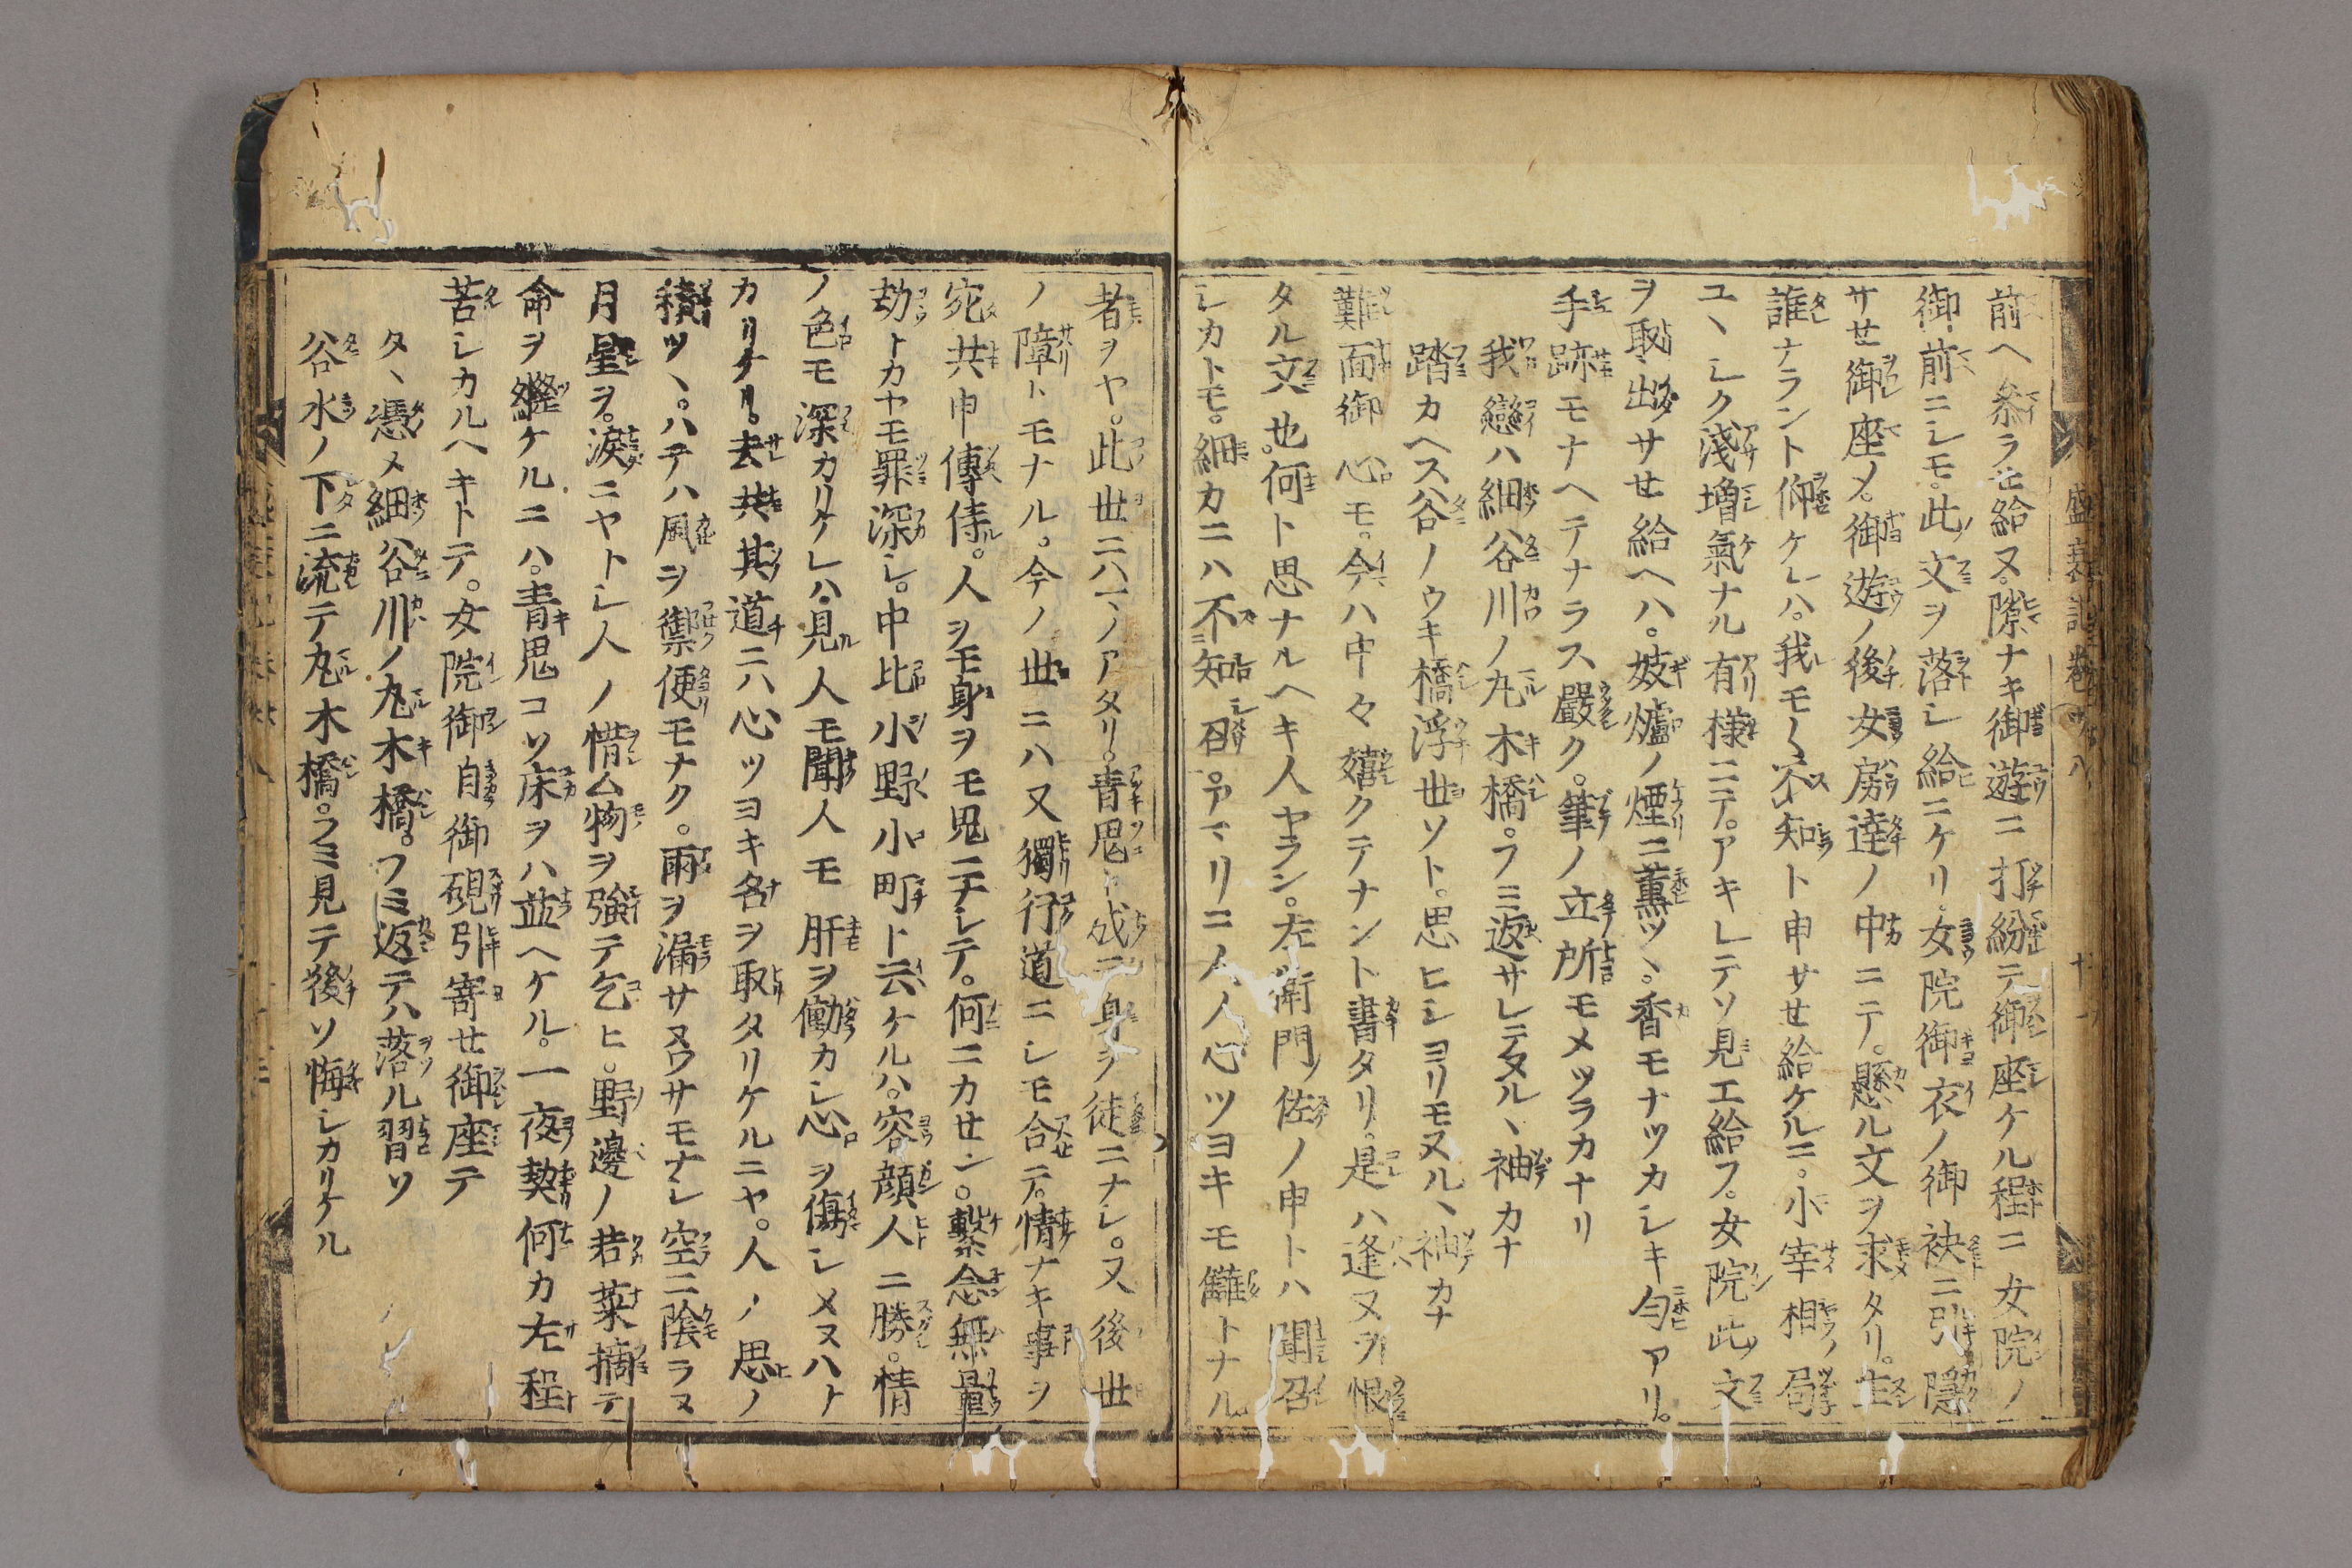 前ヘ參ラセ給ヌ。隙ナキ御遊ニ打紛テ御座ケル程ニ女院ノ
御前ニシモ。此文ヲ落シ給ニケリ。女院御衣ノ御袂ニ引隱
サセ御座メ。御遊ノ後女房達ノ中ニテ。懸ル文ヲ求タリ。主
誰ナラント仰ケレハ。我モ〱不知ト申サセ給ケルニ。小宰相ノ局
ユヽシク淺增氣ナル有樣ニテ。アキレテソ見エ給フ。女院此文
ヲ恥出サセ給ヘハ。妓爐ノ煙ニ薫ツヽ。香モナツカシキ匂アリ。
手跡モナヘテナラス嚴ク。筆ノ立所モメツラカナリ
我戀ハ細谷川ノ丸木橋。フミ返サレテヌルヽ袖カナ
踏カヘス谷ノウキ橋浮世ソト。思ヒシヨリモヌルヽ袖カナ
難面御心モ。今ハ中々嬉クテナント書タリ。是ハ逢ヌヲ恨
タル文也。何ト思ナルヘキ人ヤラン。左衛門佐ノ申トハ聞召
シカトモ。細カニハ不知召。アマリニ人ノ心ツヨキモ讎トナル
者ヲヤ。此世ニハマノアタリ。青鬼ト成テ身ヲ徒ニナシ。又後世
ノ障トモナル。今ノ世ニハ又獨行道ニシモ合テ。情ナキ事ヲ
宛共申傳侍。人ヲモ身ヲモ鬼ニナシテ。何ニカセン。繫念無量
劫トカヤモ罪深シ。中比小野小町ト云ケルハ。容顔人ニ勝。情
ノ色モ深カリケレハ。見人モ聞人モ肝ヲ働カシ心ヲ傷シメヌハナ
カリケリ。去共其道ニハ心ツヨキ名ヲ取タリケルニヤ。人ノ思ノ
積ツヽ。ハテハ風ヲ禦便モナク。雨ヲ漏サヌワサモナシ空ニ陰ラヌ
月星ヲ。涙ニヤトシ人ノ惜ム物ヲ強テ乞ヒ。野邊ノ若菜摘テ
命ヲ繼ケルニハ。青鬼コソ床ヲハ並ヘケル。一夜契何カ左程
苦シカルヘキトテ。女院御自御硯引寄セ御座テ
タヽ憑メ細谷川ノ丸木橋。フミ返テハ落ル習ソ
谷水ノ下ニ流テ丸木橋。フミ見テ後ソ悔シカリケル